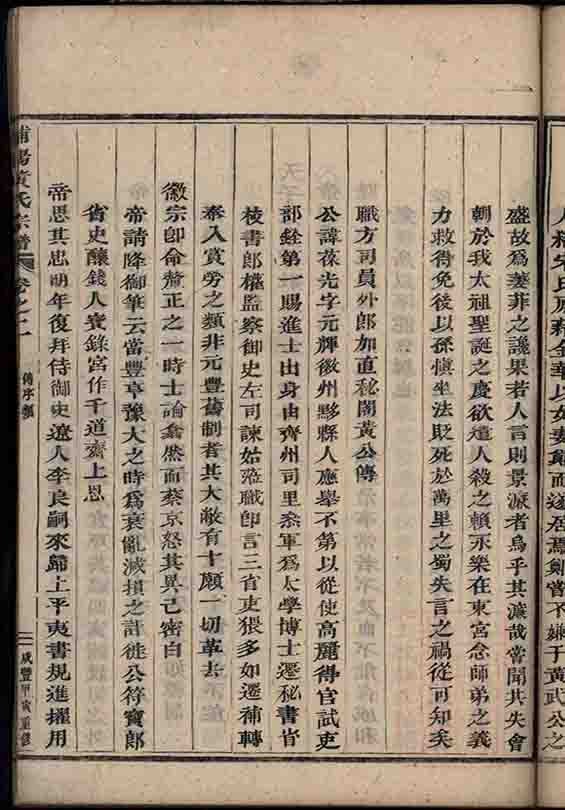 人稱宋氏
盛故為萋菲之讒果若人言則景濂者烏乎其濂哉嘗聞其失會
朝於我太祖聖誕之慶欲遣人殺之賴永樂在東宮念師弟之義
力救得免後以孫愼坐法貶死於萬里之蜀失言之禍從可知矣
職方司員外郎加直秘閣黃公傳
公諱葆光字元輝徽州黟縣人應舉不第以從使高麗得官試吏
部銓第一賜進士出身由齊州司里叅軍為太學博士遷秘書省
校書郎權監察御史左司諫始蒞職卽言三省吏猥多如遷補轉
奉入賞勞之類非元豐舊制者其大敝有十願一切革去
徽宗卽命釐正之一時士論翕然而蔡京怒其異己密白
帝請降御筆云當豐亨豫大之時為衰亂減損之計徙公符寶郎
省史釀錢人寶籙宮作千道齋上恩
帝思其忠明年復拜侍御史遼人李良嗣來歸上平夷書規進擢用
浦陽黃氏宗譜 卷之二 傳序類 二 咸豐甲寅重修